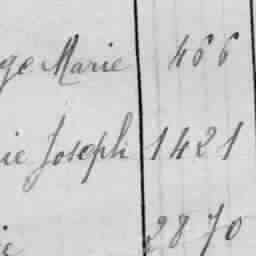 ge Marie 466
ie Joseph 1421
ie 2870